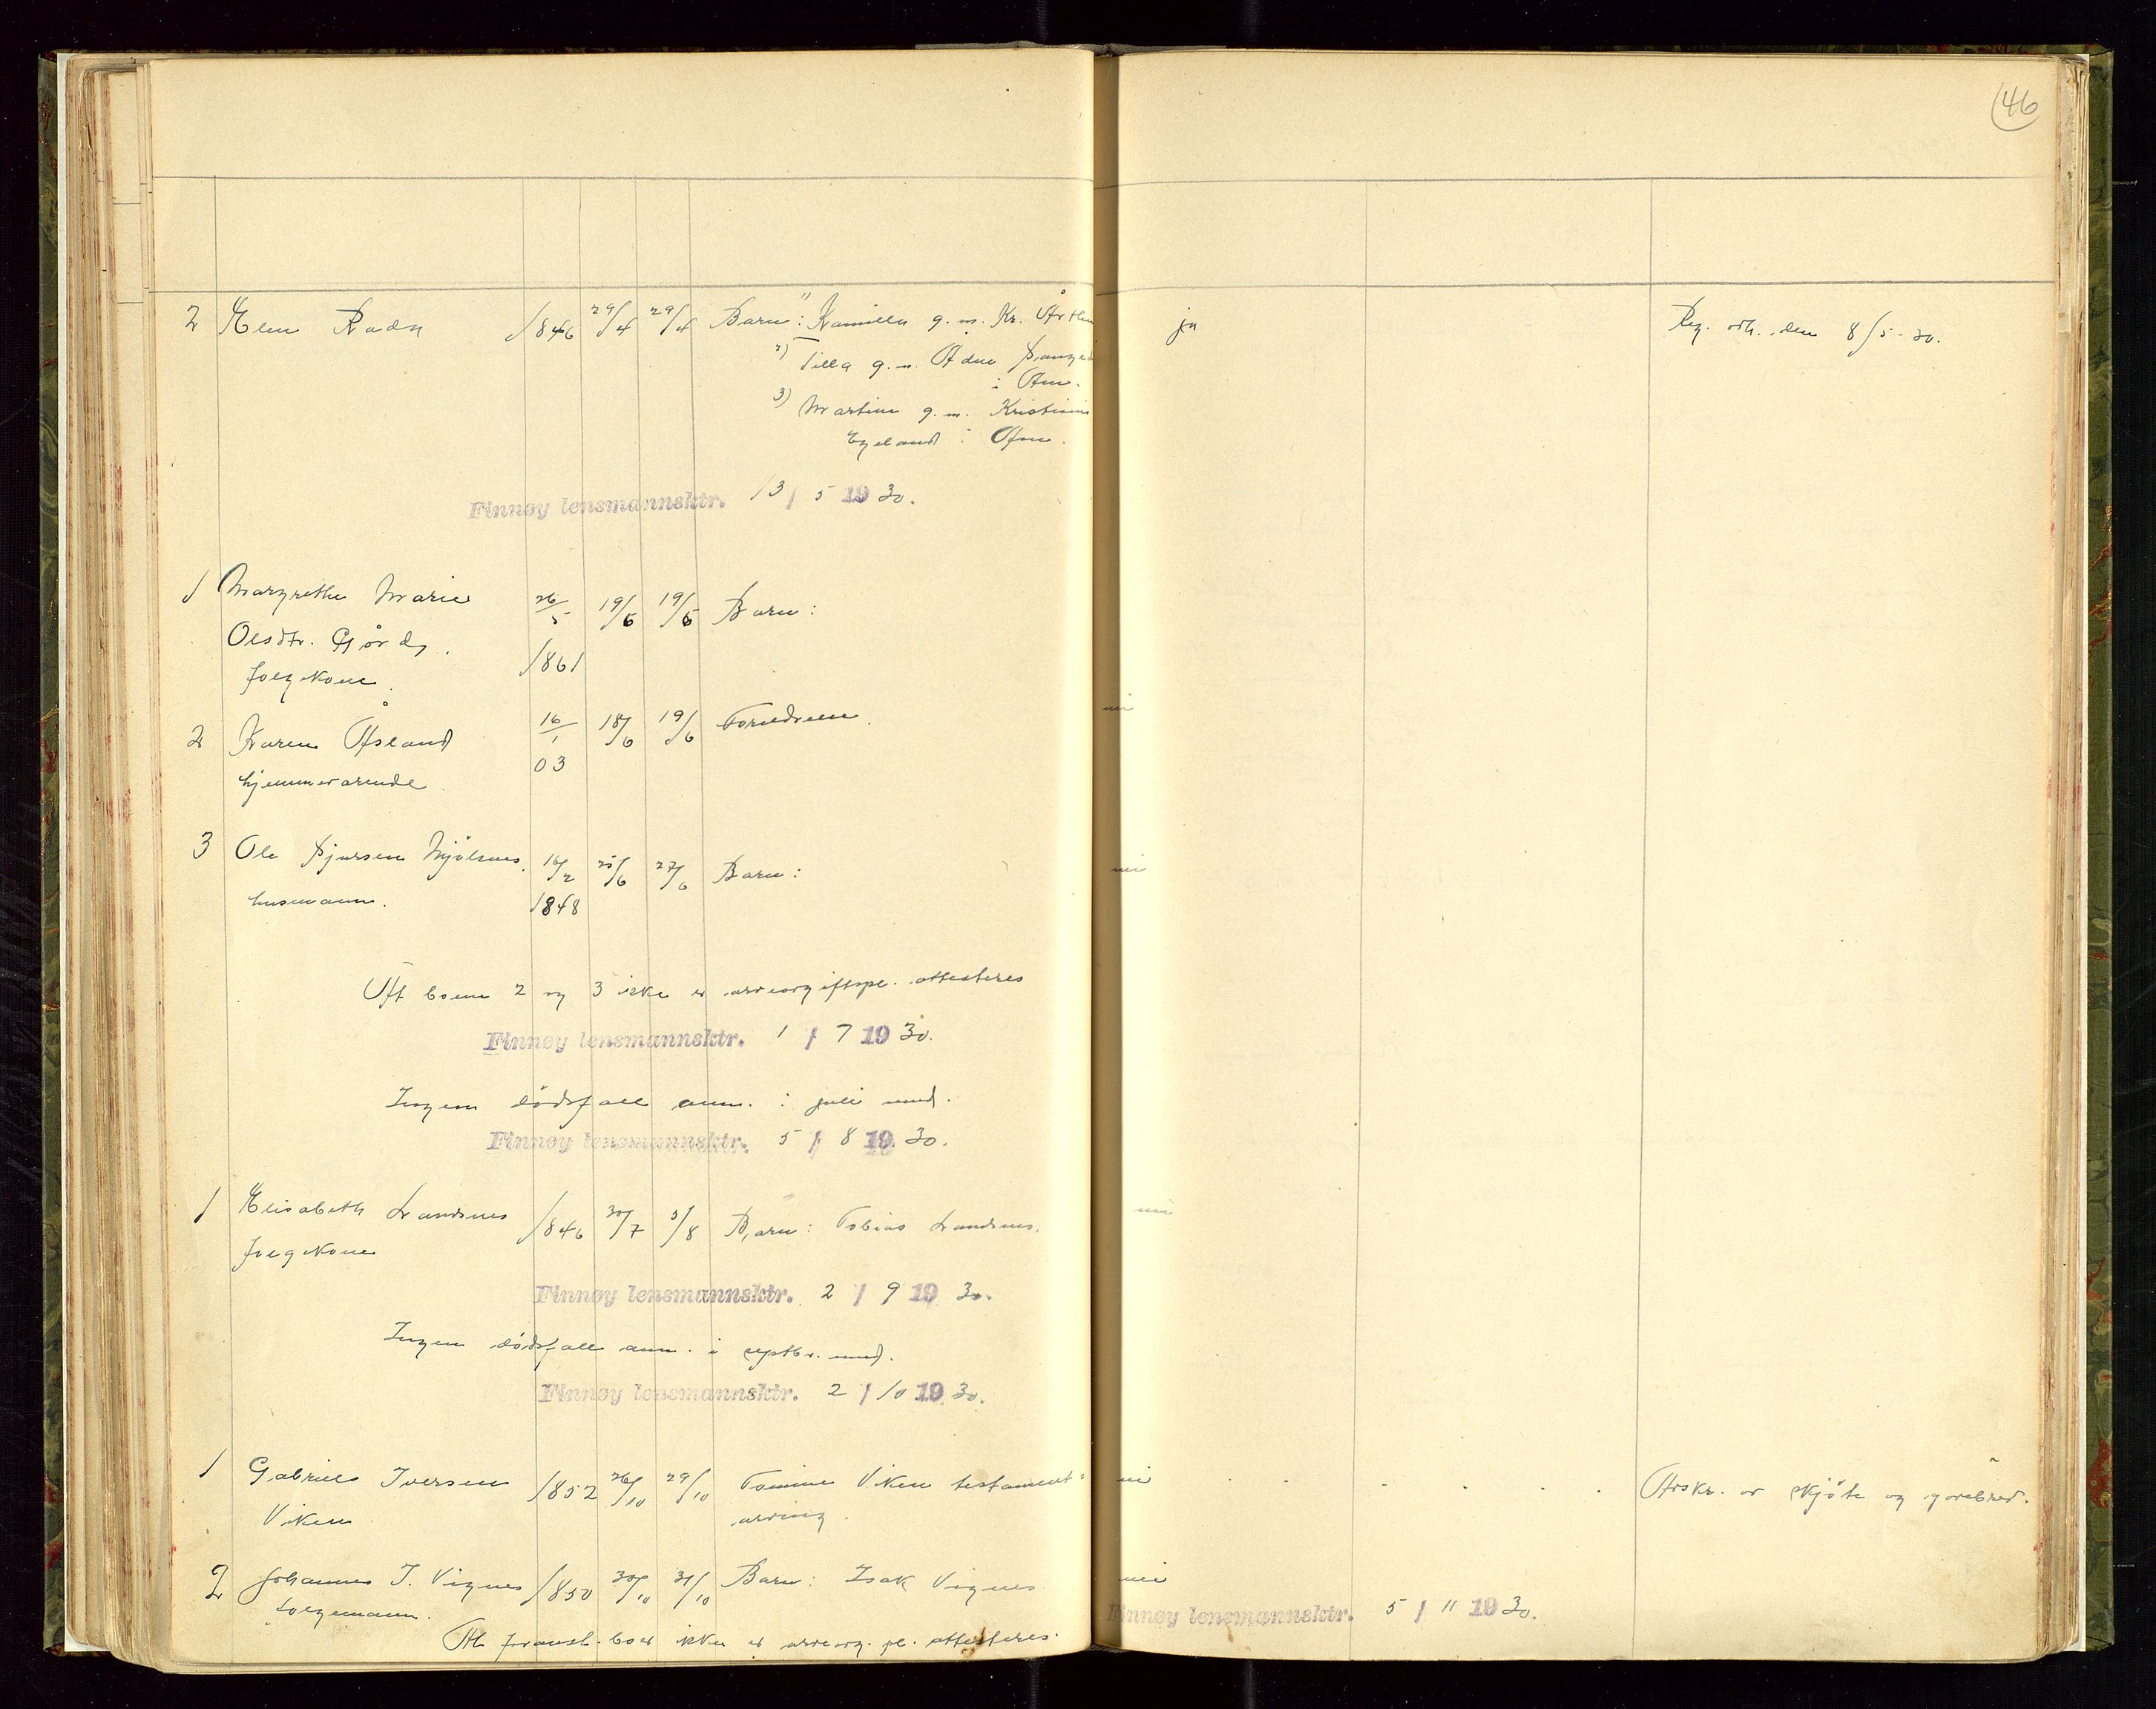 46
2 Elen Rada 1846 29/4 29/4 Barn: 1) Kamilla g. m. Kr. ja Reg. erh. den 8/5-30.
2) Tilla g. m. Adne
i Ame.
3) Martine g. m. Kristian
Egeland i Ame.
Finnøy lensmannsktr. 13/5 1930.
1 Margrethe Marie 26/5 19/6 19/6 Barn:
Olsdtr. Gård,
folgekone. 1861
2 Karen Åsland 16/1 18/6 19/6 Foreldrene. nei
hjemmeværende 03
3 Ole Sjursen Mjølsnes, 16/2 25/6 27/6 Barn: nei
husmann. 1848
At boene 2 og 3 ikke er arveavgiftspl. attesteres
Finnøy lensmannsktr. 1/7 1930.
Ingen dødsfall anm. i juli mnd.
Finnøy lensmannsktr. 5/8 1930.
1 Elisabeth Landsnes 1846 30/7 5/8 Barn: Tobias Landsnes. nei
folgekone
Finnøy lensmannsktr. 2/9 1930.
Ingen dødsfall anm. i septbr. mnd.
Finnøy lensmannsktr. 2/10 1930.
1 Gabriel Iversen 1852 26/10 29/10 Tomine Viken testament- nei Avskr. av skjøte og gavebrev.
Viken arving.
2 Johannes I. Vignes 1850 30/10 31/10 Barn: Isak Vignes nei
folgemann.
Finnøy lensmannsktr. 5/11 1930.
At foranst. boer ikke er arveavg. pl. attesteres.